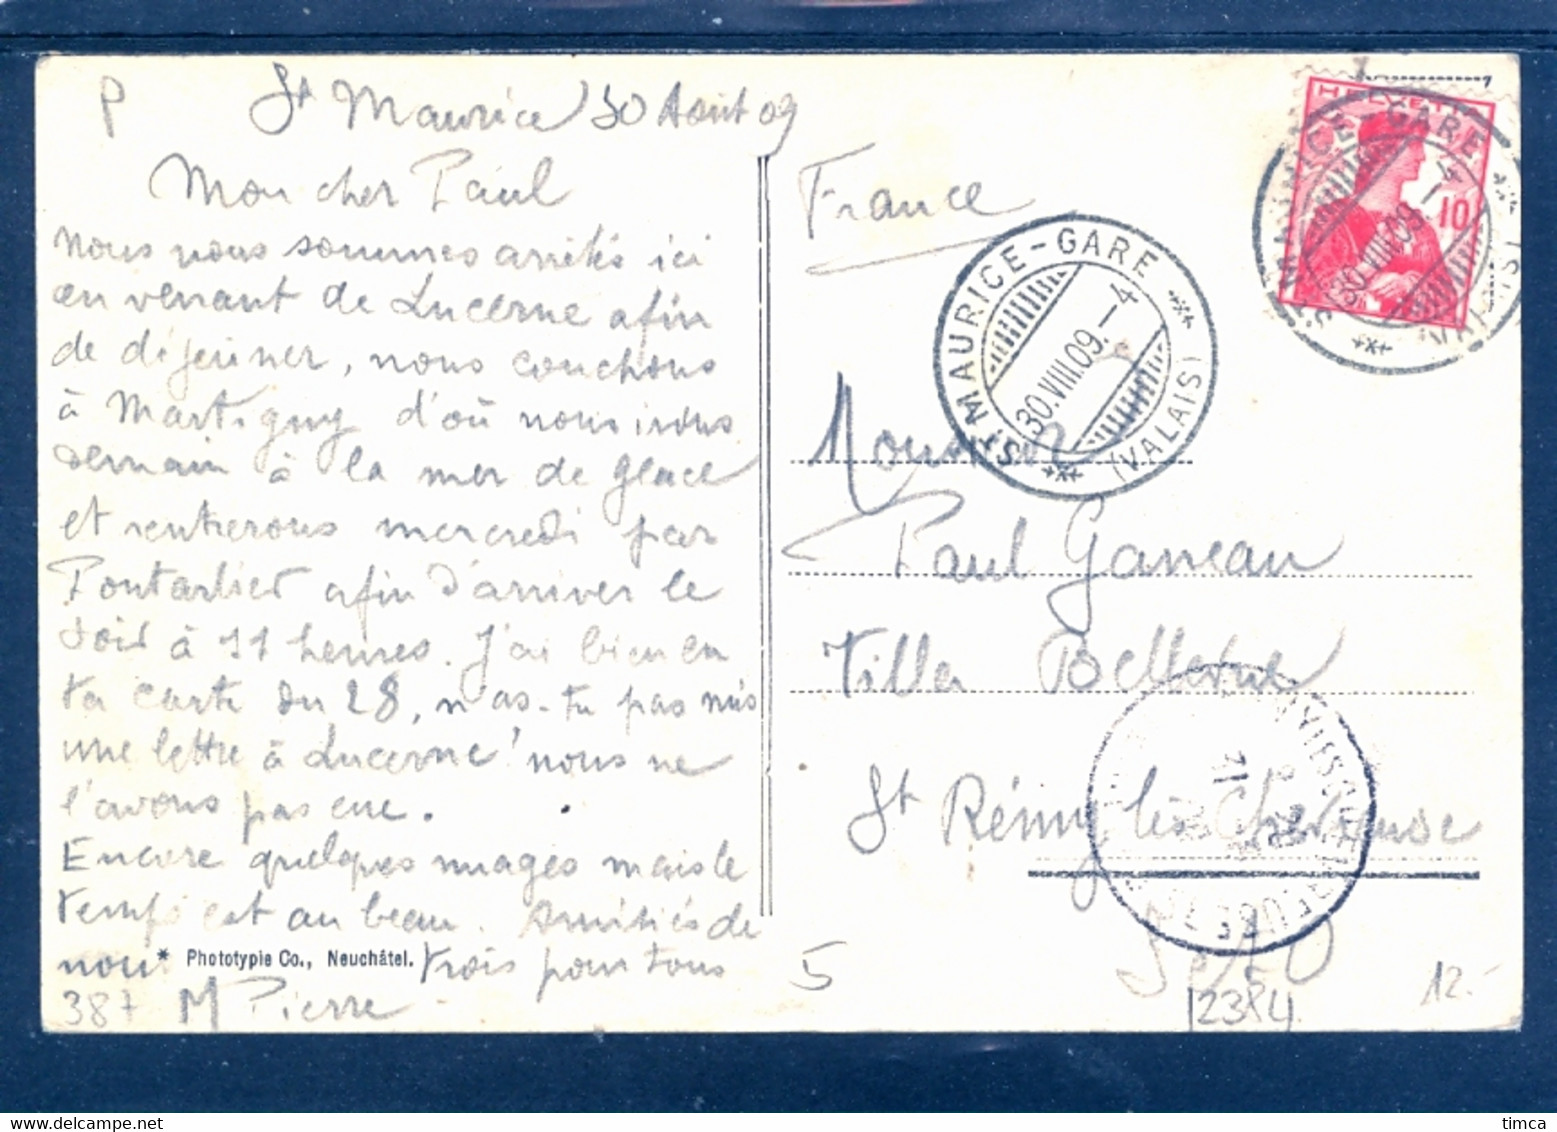 P
St Maurice 30 Aout 09
Mon cher Paul
nous nous sommes arrêtés ici
en venant de Lucerne afin
de déjeuner, nous couchons
à Martigny d'où nous irons
demain à la mer de glace
et rentrerons mercredi par
Pontarlier afin d'arriver le
soir à 11 heures. J'ai bien eu
ta carte du 28, n'as-tu pas mis
une lettre à Lucerne! nous ne
l'avons pas eue.
Encore quelques nuages mais le
temps est au beau. Amitiés de
nous trois pour tous
* Phototypie Co., Neuchâtel.
387 M Pierre
France
HELVETIA
10
ST MAURICE-GARE
30.VIII.09.-4
(VALAIS)
ST MAURICE-GARE
30.VIII.09.-4
(VALAIS)
Monsieur
Paul Ganneau
Villa Bellevue
St Rémy lès Chevreuse
S et O
5
12384
12.-
timca